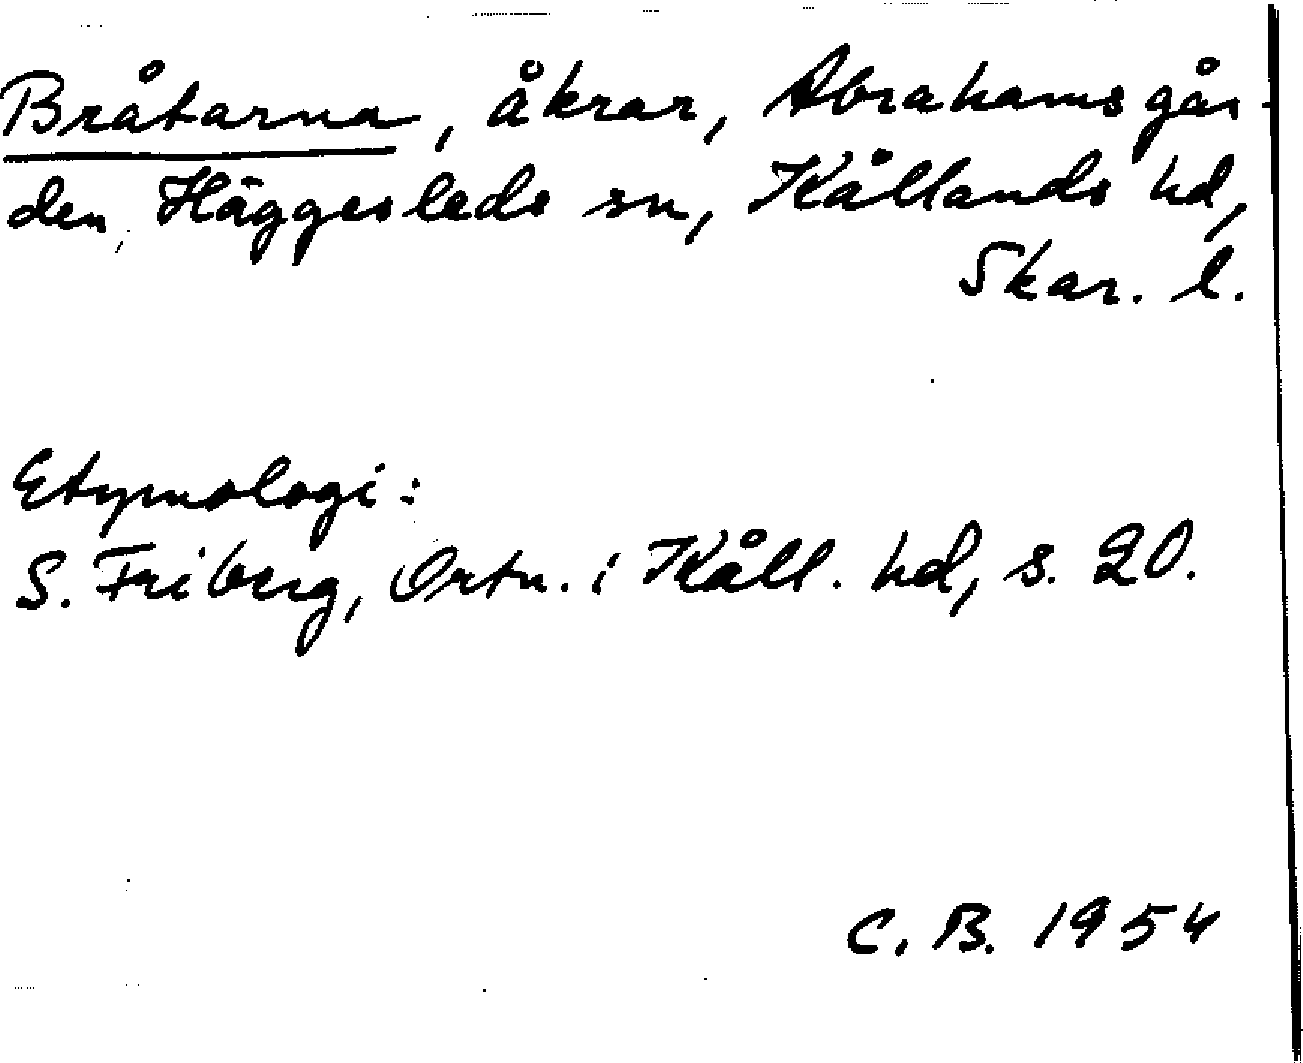 Bråtarna, åkrar, Abrahamsgår-
den, Häggesleds sn, Kållands hd,
Skar. l.
Etymologi:
S. Friberg, Ortn. i Kåll. hd, s. 20.
C. B. 1954